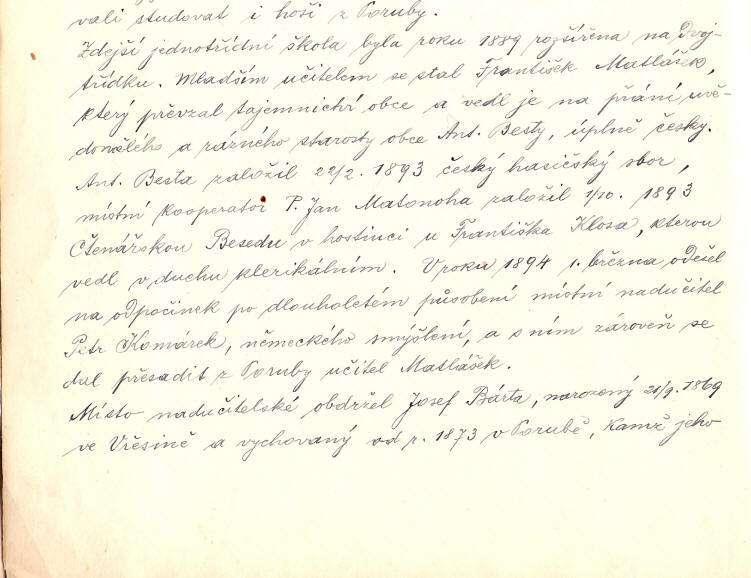 vali studovat i hoši z Poruby.
Zdejší jednotřídní škola byla roku 1889 rozšířena na dvoj-
třídku. Mladším učitelem se stal František Matlášek,
který převzal tajemnictví obce a vedl je na přání uvě-
domělého a rázného starosty obce Ant. Besty, úplně česky.
Ant. Besta založil 22/2. 1893 český hasičský sbor,
místní kooperátor P. Jan Matonoha založil 1/10. 1893
Čtenářskou Besedu v hostinci u Františka Klosa, kterou
vedl v duchu klerikálním. V roku 1894 1. března odešel
na odpočinek po dlouholetém působení místní nadučitel
Petr Komárek, německého smýšlení, a s ním zároveň se
dal přesadit z Poruby učitel Matlášek.
Místo nadučitelské obdržel Josef Bárta, narozený 21/9. 1869
ve Vřesině a vychovaný od r. 1873 v Porubě, kamž jeho